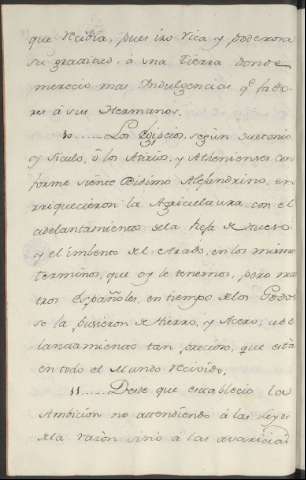 que recibía, pues iro rica y poderosa
su gratitud, à una tierra donde
mereció mas Indulgencias qe. fabo-
res à sus Hermanos.
10......Los Egipcios, segun Suetonio
y Siculo, ò los Atticos, y Athenienses con
forme siente Didimo Alejandrino, en
rriquecieron la Agricultura, con el
adelantamiento de la Reja de Nuevo
y el imbento del Arado, en los mismos
terminos, que oy le tenemos, pero nues
tros Españoles, en tiempo de los Godos
se la pusieron de Hierro, y Acero; ade
lantamiento tan precioso, que està
en todo el Mundo recivido.
11......Desde que establecio la
Ambicion no attendiendo à las Leyes
de la razon sino à las